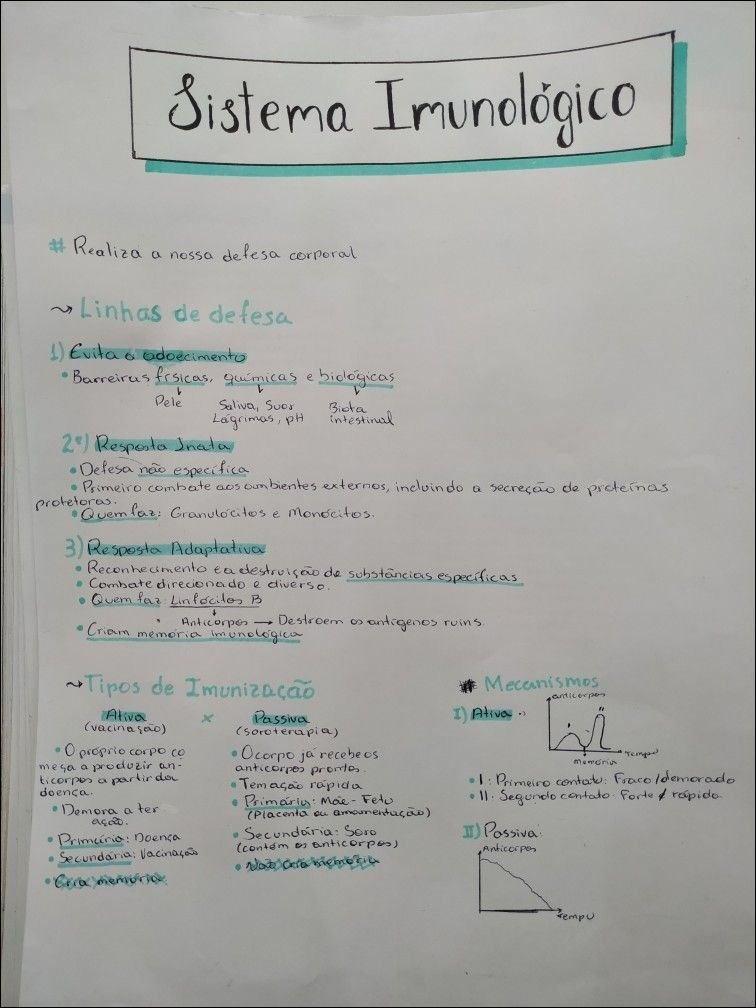 Sistema Imunológico
# Realiza a nossa defesa corporal
~ Linhas de defesa
1) Evita o adoecimento
• Barreiras físicas, químicas e biológicas
Pele
Saliva, Suor
Lágrimas, pH
Biota
intestinal
2º) Resposta Inata
• Defesa não específica
• Primeiro combate aos ambientes externos, incluindo a secreção de proteínas
protetoras.
• Quem faz: Granulócitos e Monócitos.
3) Resposta Adaptativa
• Reconhecimento e a destruição de substâncias específicas
• Combate direcionado e diverso.
• Quem faz: Linfócitos B
• Anticorpos → Destroem os antígenos ruins.
• Criam memória imunológica
~ Tipos de Imunização
Ativa x Passiva
(vacinação) (soroterapia)
• O próprio corpo co
meça a produzir an-
ticorpos a partir da
doença.
• Demora a ter
ação.
• Primária: Doença
• Secundária: Vacinação
• Cria memória
• O corpo já recebe os
anticorpos prontos.
• Tem ação rápida
• Primária: Mãe - Feto
(Placenta ou amamentação)
• Secundária: Soro
(contém os anticorpos)
• Não cria memória
# Mecanismos
I) Ativa:
anticorpos
I
II
Tempo
memória
• I: Primeiro contato: Fraco/demorado
• II: Segundo contato: Forte / rápido.
II) Passiva:
Anticorpos
Tempo